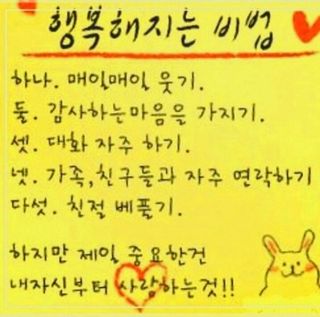 행복해지는 비법
하나. 매일매일 웃기.
둘. 감사하는마음을 가지기.
셋. 대화 자주 하기.
넷. 가족,친구들과 자주 연락하기
다섯. 친절 베풀기.
하지만 제일 중요한건
내자신부터 사랑하는것!!